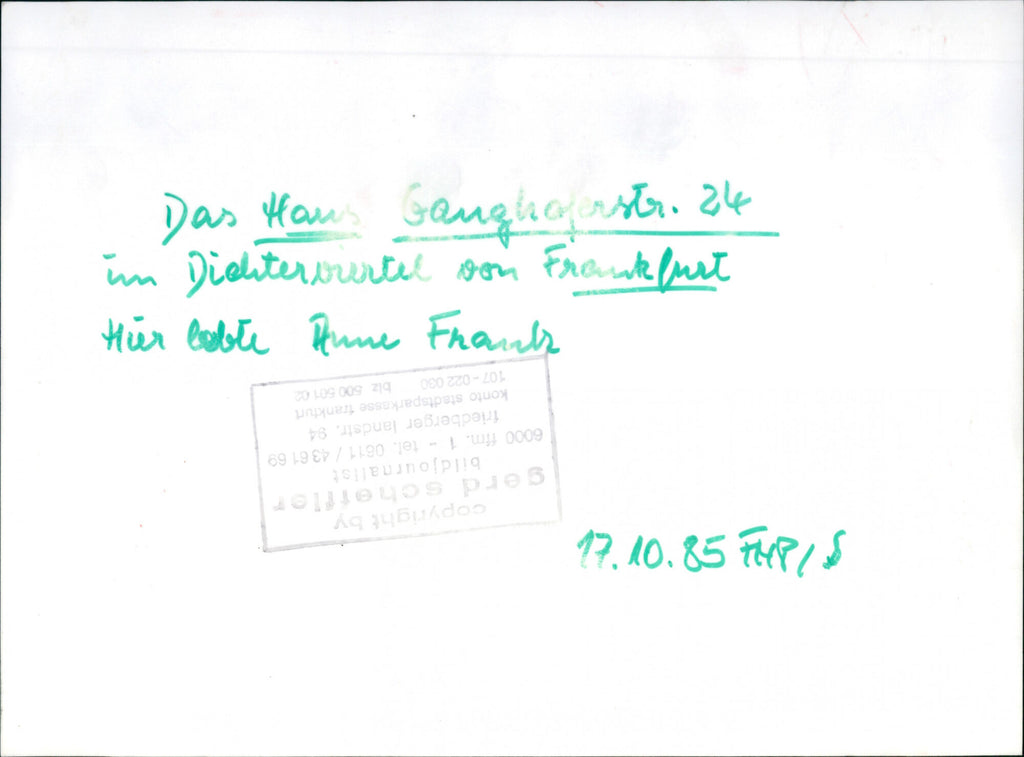 Das Haus Ganghoferstr. 24
im Dichterviertel von Frankfurt
Hier lebte Anne Frank
copyright by
gerd scheffler
bildjournalist
6000 ffm. 1 - tel. 0611 / 43 61 69
friedberger landstr. 94
konto stadtsparkasse frankfurt
107-022 030 blz 500 501 02
17.10.85 FHP/S